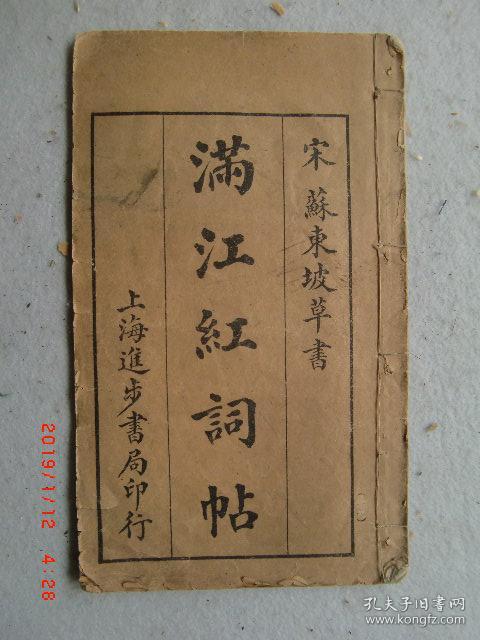 宋 蘇東坡草書
滿江紅詞帖
上海進步書局印行
2019/1/12 4:28
孔夫子旧书网
kongfz.com